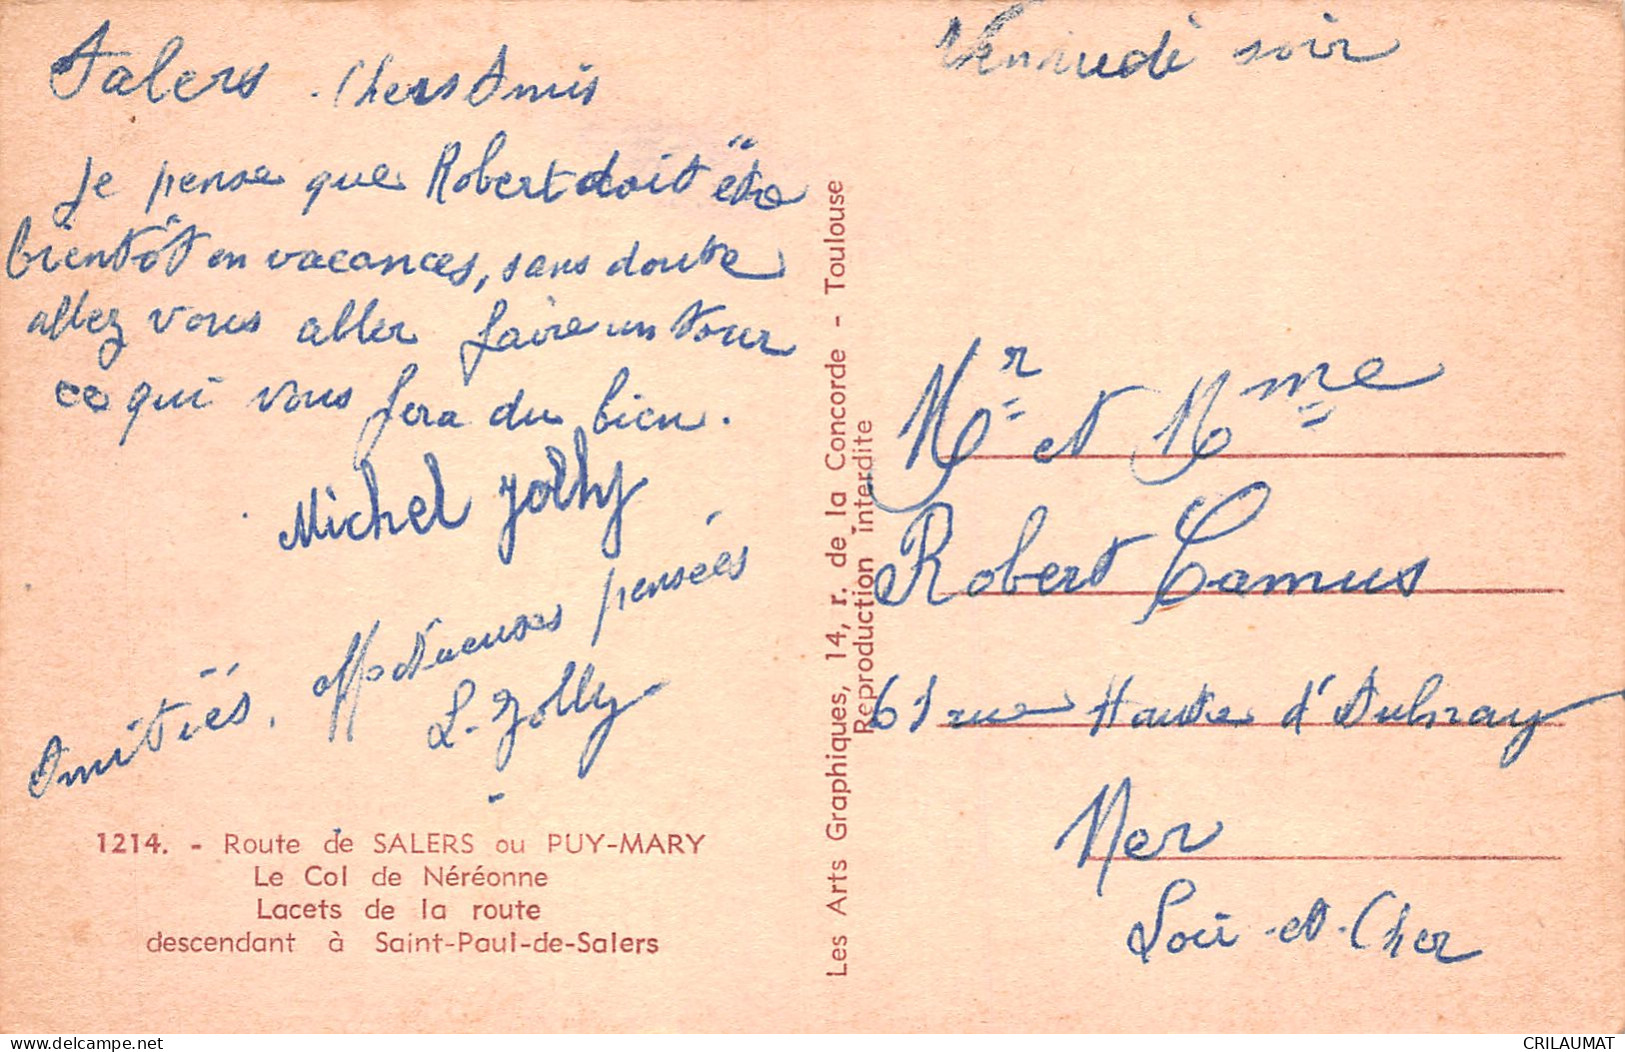 Salers. Chers Amis
Vendredi soir
Je pense que Robert doit être
bientôt en vacances, sans doute
allez vous aller faire un tour
ce qui vous fera du bien.
Michel Jolly
Amitiés. Affectueuses pensées
L. Jolly
1214. - Route de SALERS ou PUY-MARY
Le Col de Néréonne
Lacets de la route
descendant à Saint-Paul-de-Salers
Les Arts Graphiques, 14, r. de la Concorde - Toulouse
Reproduction interdite
Mr et Mme
Robert Camus
61 rue Haute d'Aulnay
Mer
Loir-et-Cher
delcampe.net
CRILAUMAT